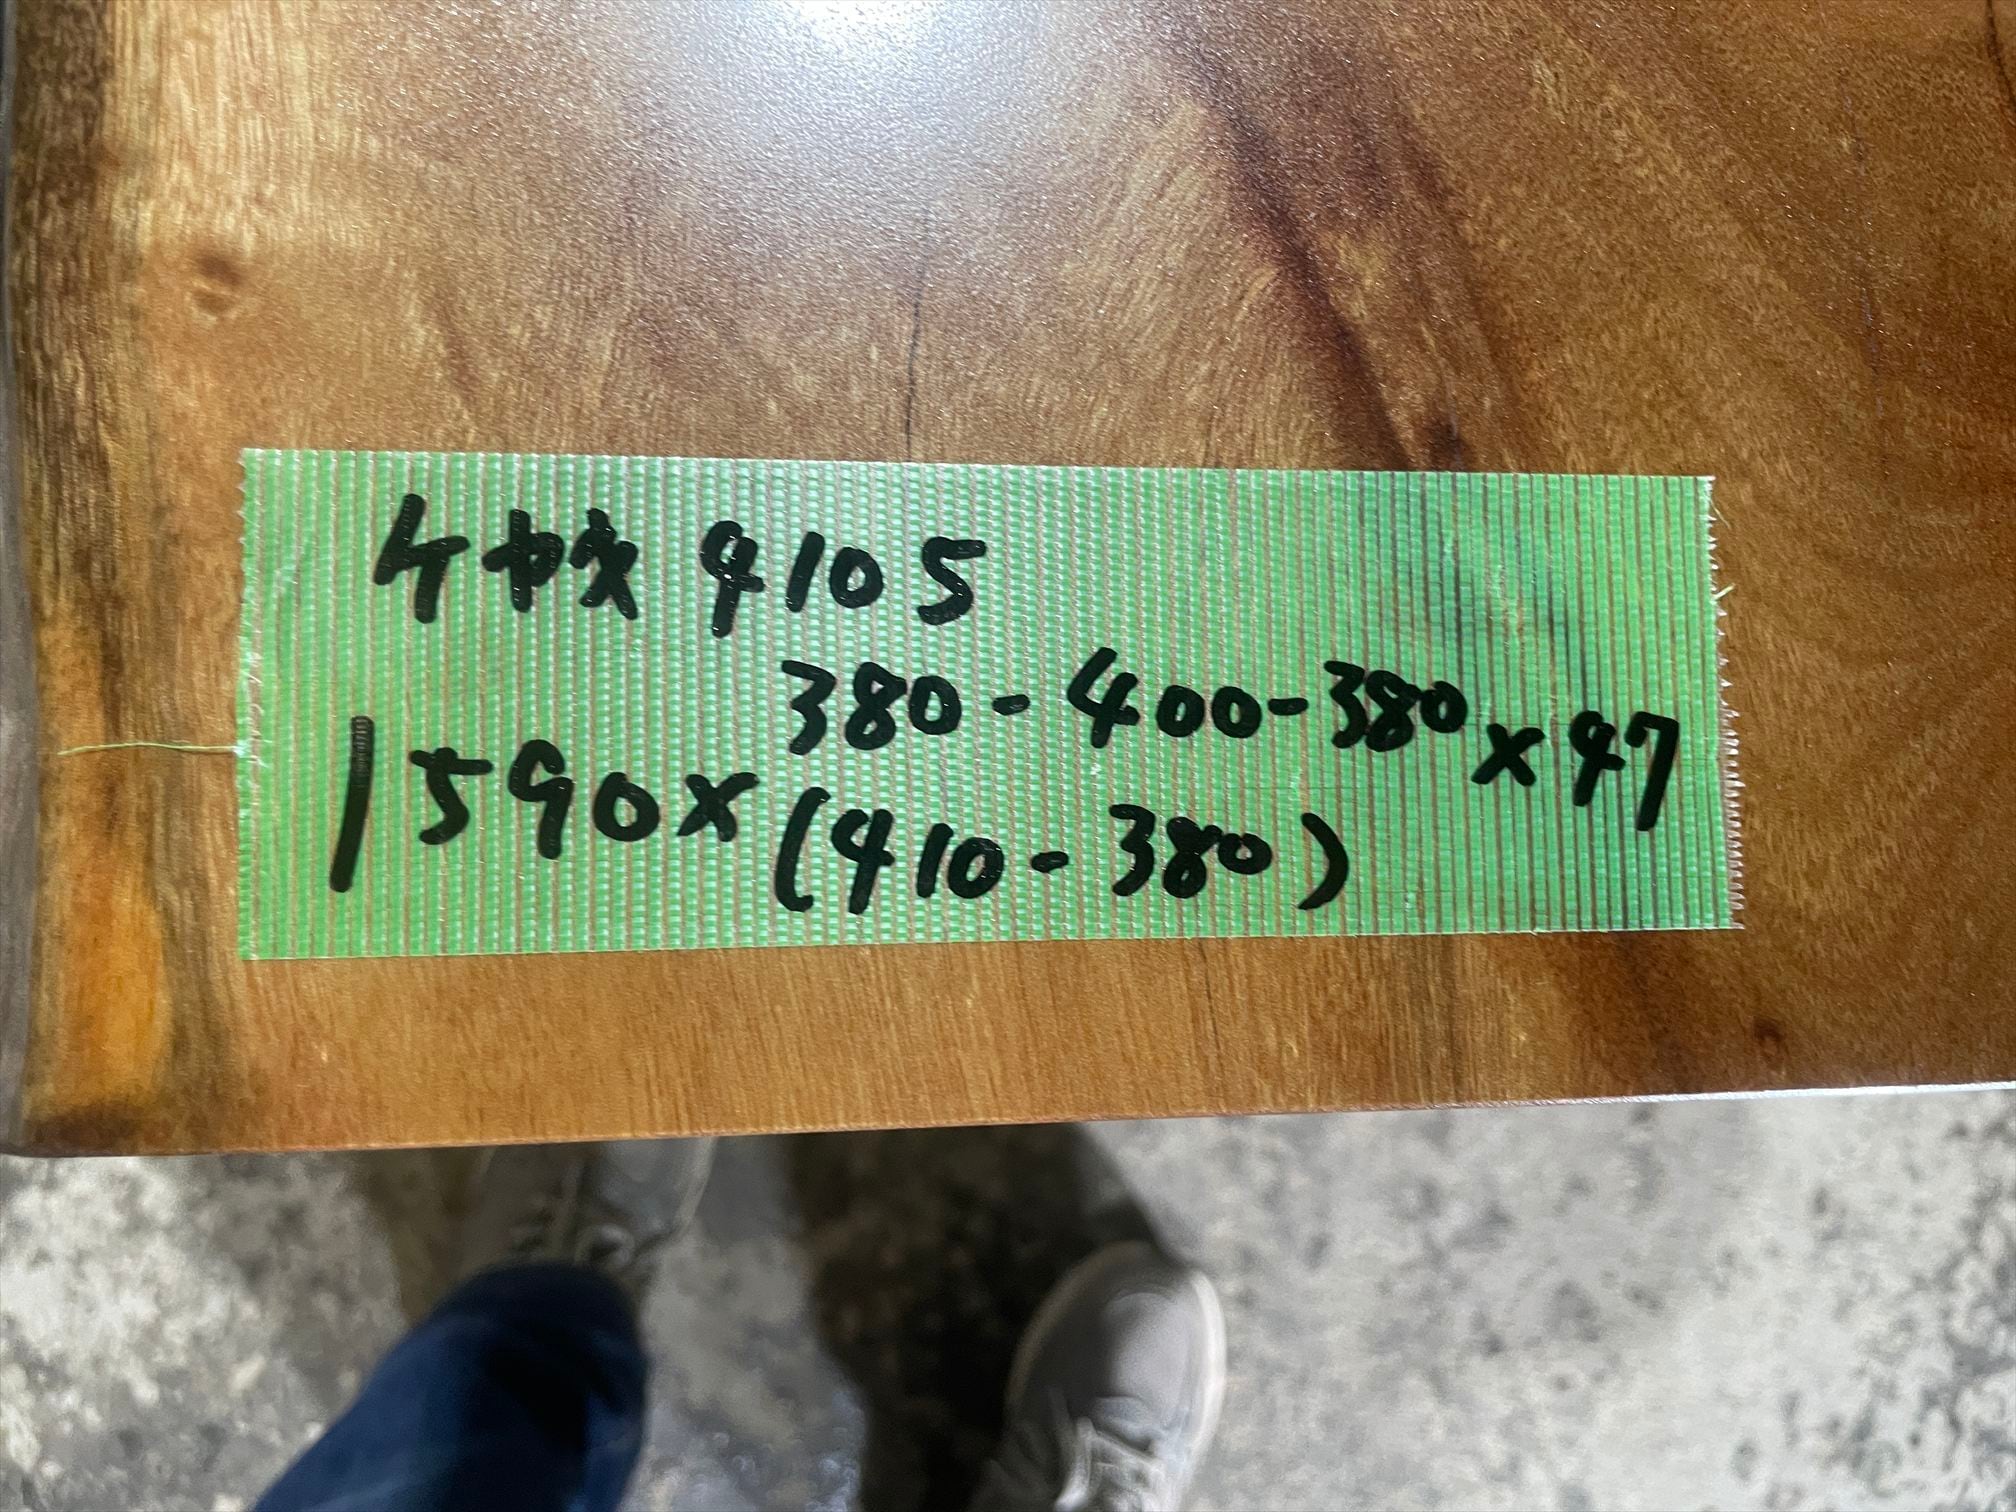 ケヤキ 4105
380-400-380
1590×(410-380)×47